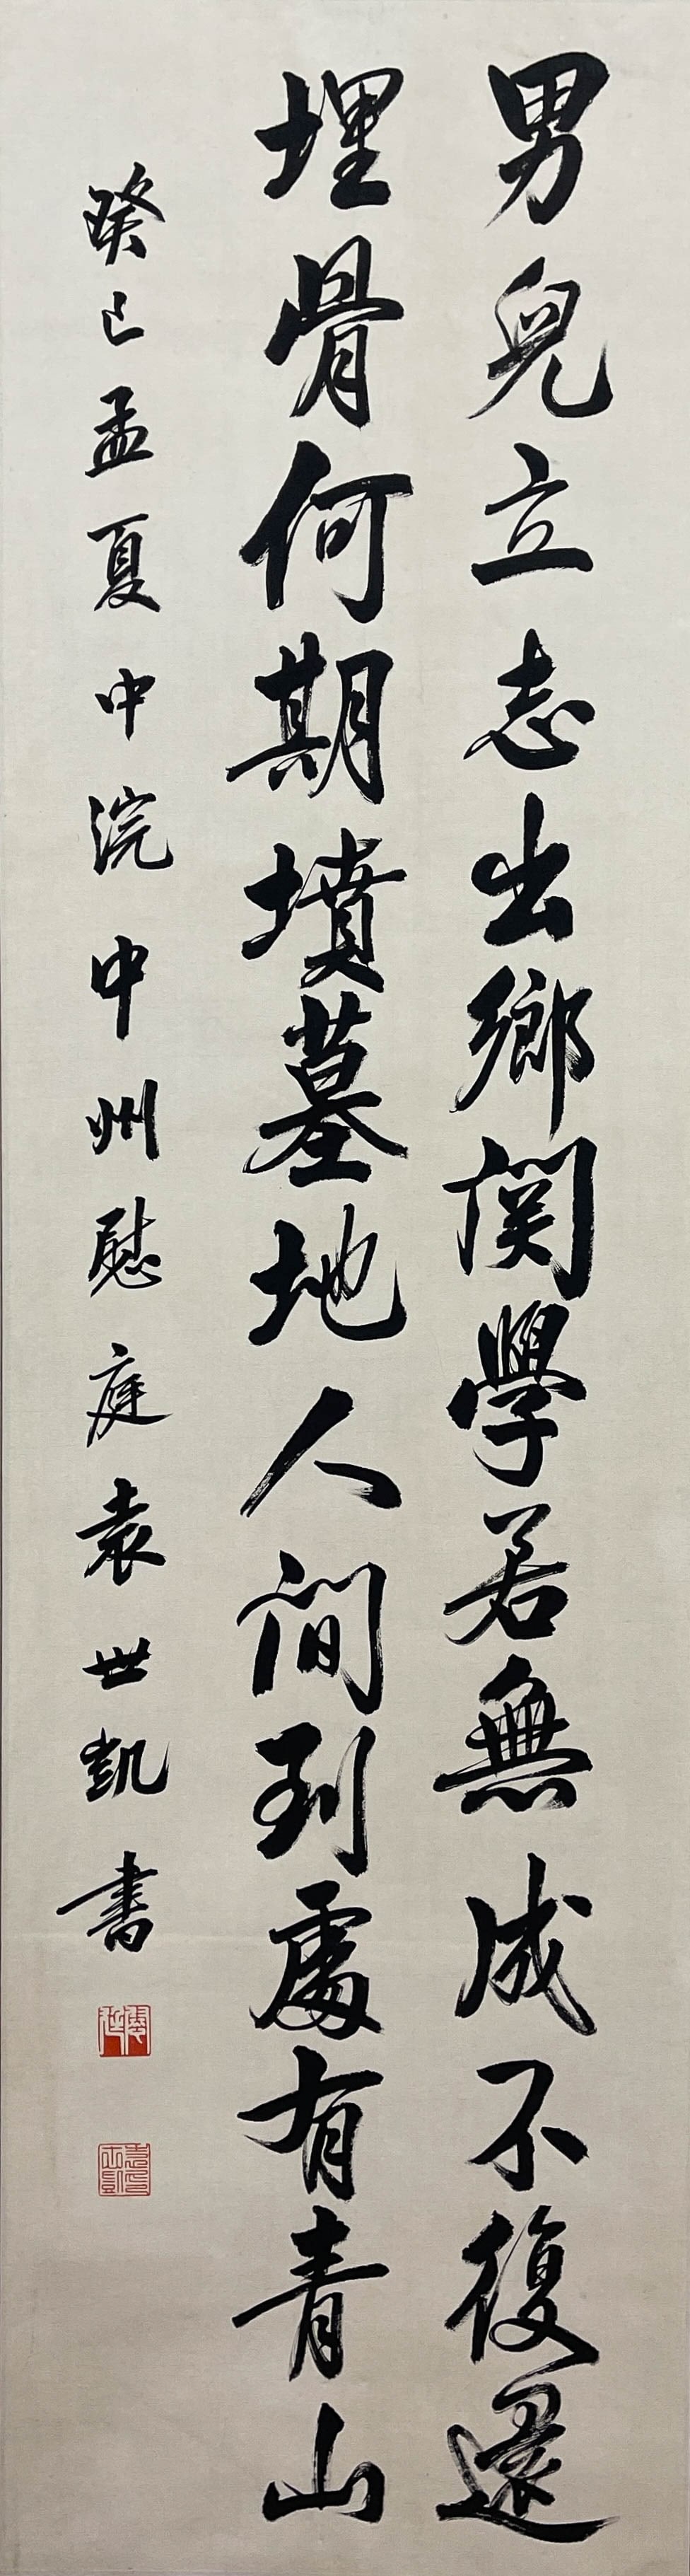 男兒立志出鄉関學若無成不復還
埋骨何期墳墓地人間到處有青山
癸巳孟夏中浣中州慰庭袁世凱書